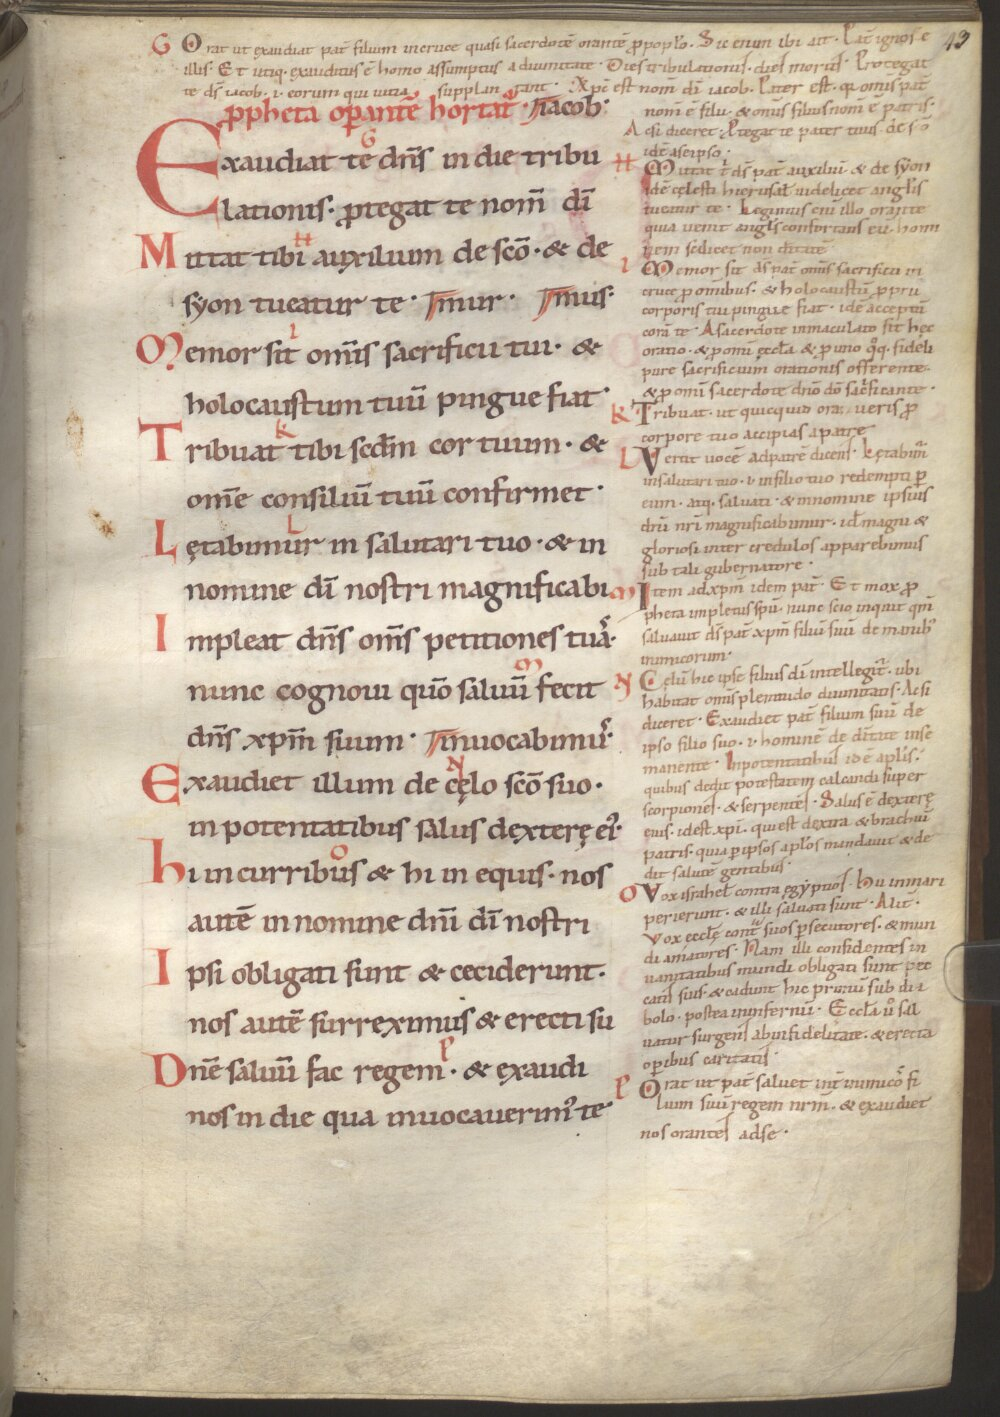 43
G Orat ut exaudiat pat̄ filium in cruce quasi sacerdotē orantē p̱ pop̱lo. Sic enim ibi ait. Pat̄ ignosce
illis. Et utiq. exauditus ē homo assumptus a diuinitate. Dies tribulationis. dies mortis. Protegat
te ds̄ iacob. i. eorum qui uitia supplantant. Xpc̄ est nom̄ dī iacob. Pater est. q̇ omis̄ pat̄
p̱pheta op̱antē hortat᷑. iacob.
Exaudiat te dn̄s in die tribu
lationis. p̱tegat te nom̄ dī
Mittat tibi auxilium de scō. & de
syon tueatur te.
Memor sit om̄is sacrificii tui. &
holocaustum tuū pingue fiat.
Tribuat tibi scd̄m cor tuum. &
om̄e consiliū tuū confirmet.
Lętabimur in salutari tuo. & in
nomine dī nostri magnificabi
Impleat dn̄s om̄s petitiones tuas.
nunc cognoui quō saluū fecit
dn̄s xp̄m suum. inuocabimur
Exaudiet illum de cęlo scō suo.
in potentatibus salus dexterę ei᷒.
hi in curribus & hi in equis. nos
autē in nomine dn̄i dī nostri
Ipsi obligati sunt & ceciderunt.
nos autē surreximus & erecti su
Dn̄e saluū fac regem. & exaudi
nos in die qua inuocauerim᷒ te
nom̄ ē filii. & omis̄ filius nom̄ ē patris.
Ac si diceret. Ptegat te pater tuus. de ō
idē a se ipso.
H Mittat t̄ ds̄ pat̄ auxiliū. & de syon
idē cęlesti hierusal̄ uidelicet angl̄is
tueatur te. Legimus enī illo orante
quia uenit angl̄s confortans eū. homi
nem scilicet non dītatē
I Memor sit ds̄ pat̄ om̄is sacrificii in
cruce p̱ omibus. & holocaustū p̱prii
corporis tui pingue fiat. idē acceptū
corā te. A sacerdote inmaculato sit hec
oratio. & p̱ omi ęccl̄a & p̱ uno qq. fideli
pure sacrificium orationis offerente.
& p̱ omi sacerdote dn̄o dō sacrificante.
K Tribuat. ut quicquid ora ueris p̱
corpore tuo accipias a patre
L Vertit uocē ad patrē dicens. Lętabim᷑
in salutari tuo. i in filio tuo redempti p̱
eum. atq. saluati. & in nomine ipsius
dn̄i nr̄i magnificabimur. id̄ magni &
gloriosi inter credulos apparebimus
sub tali gubernatore.
M Item ad xp̄m idem pat̄. Et mox p̱
pheta impletus spū. nunc scio inquit qm̄
saluauit ds̄ pat̄ xp̄m filiū suū de manib᷒
inimicorum.
N Cęlū hic ipse filius dī intellegit᷑. ubi
habitat omis̄ plenitudo diuinitatis. Ac si
diceret. Exaudiet pat̄ filium suū de
ipso filio suo. i hominē de dītate in se
manente. In potentatibus id ē aplis̄.
quibus dedit potestatem calcandi super
scorpiones. & serpentes. Salus ē dexterę
eius. id est xp̄i. qui est dextra & brachiū
patris. quia p̱ ipsos aplos̄ mandauit & de
dit salutē gentibus.
O Vox israhel̄ contra ęgyptios. Hii in mari
perierunt. & illi saluati sunt. Alit᷑.
Vox eccl̄ę cont̄ suos p̱secutores. & mun
di amatores. Nam illi confidentes in
uanitatibus mundi obligati sunt pec
catis suis. & cadunt hic primū sub dia
bolo. postea in infernū. Eccl̄a ū sal
uatur surgens ab infidelitate. & erecta
op̱ibus caritatis.
P Orat ut pat̄ saluet int̄ inimicos fi
lium suū regem nrm̄. & exaudiet
nos orantes ad se.